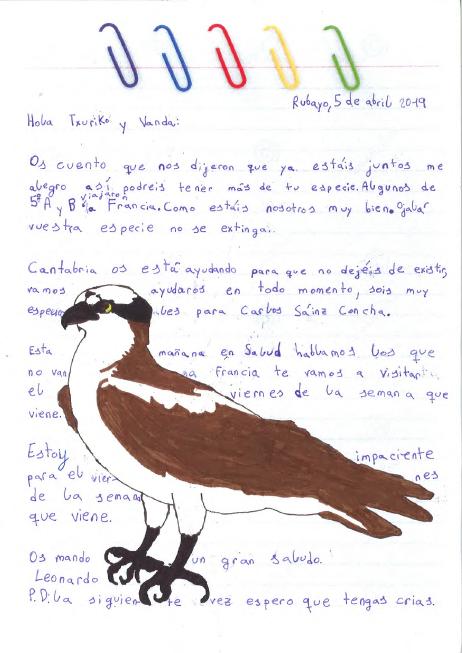 Rubayo, 5 de abril 2019
Hola Txuriko y Vanda:
Os cuento que nos dijeron que ya estáis juntos me
alegro así podreis tener más de tu especie. Algunos de
5º A y B viajaron a Francia. Como estáis nosotros muy bien. Ojalar
vuestra especie no se extinga.
Cantabria os está ayudando para que no dejéis de existir,
vamos ayudaros en todo momento, sois muy
para Carlos Sáinz Concha.
Esta mañana en Salud hablamos los que
no van Francia te vamos a visitar
el viernes de la semana que
viene.
Estoy impaciente
para el
de la semana
que viene.
Os mando un gran saludo.
Leonardo
P.D: La siguiente vez espero que tengas crias.